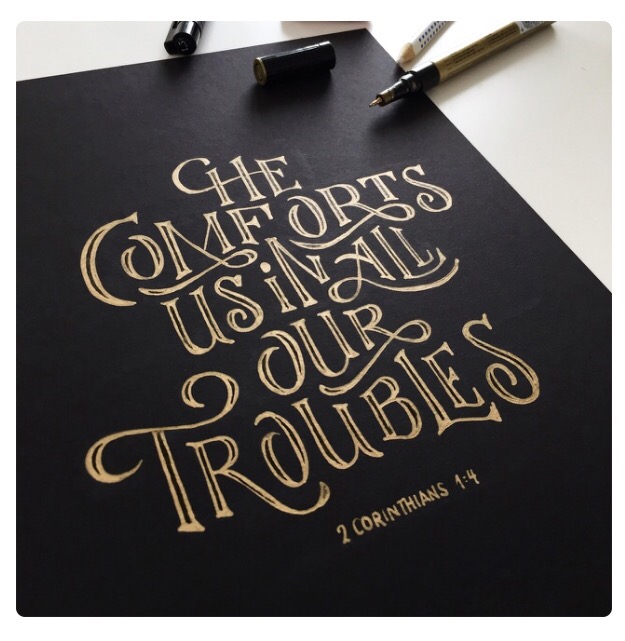 HE
COMFORTS
US iN ALL
OUR
TROUBLES
2 CORINTHIANS 1:4